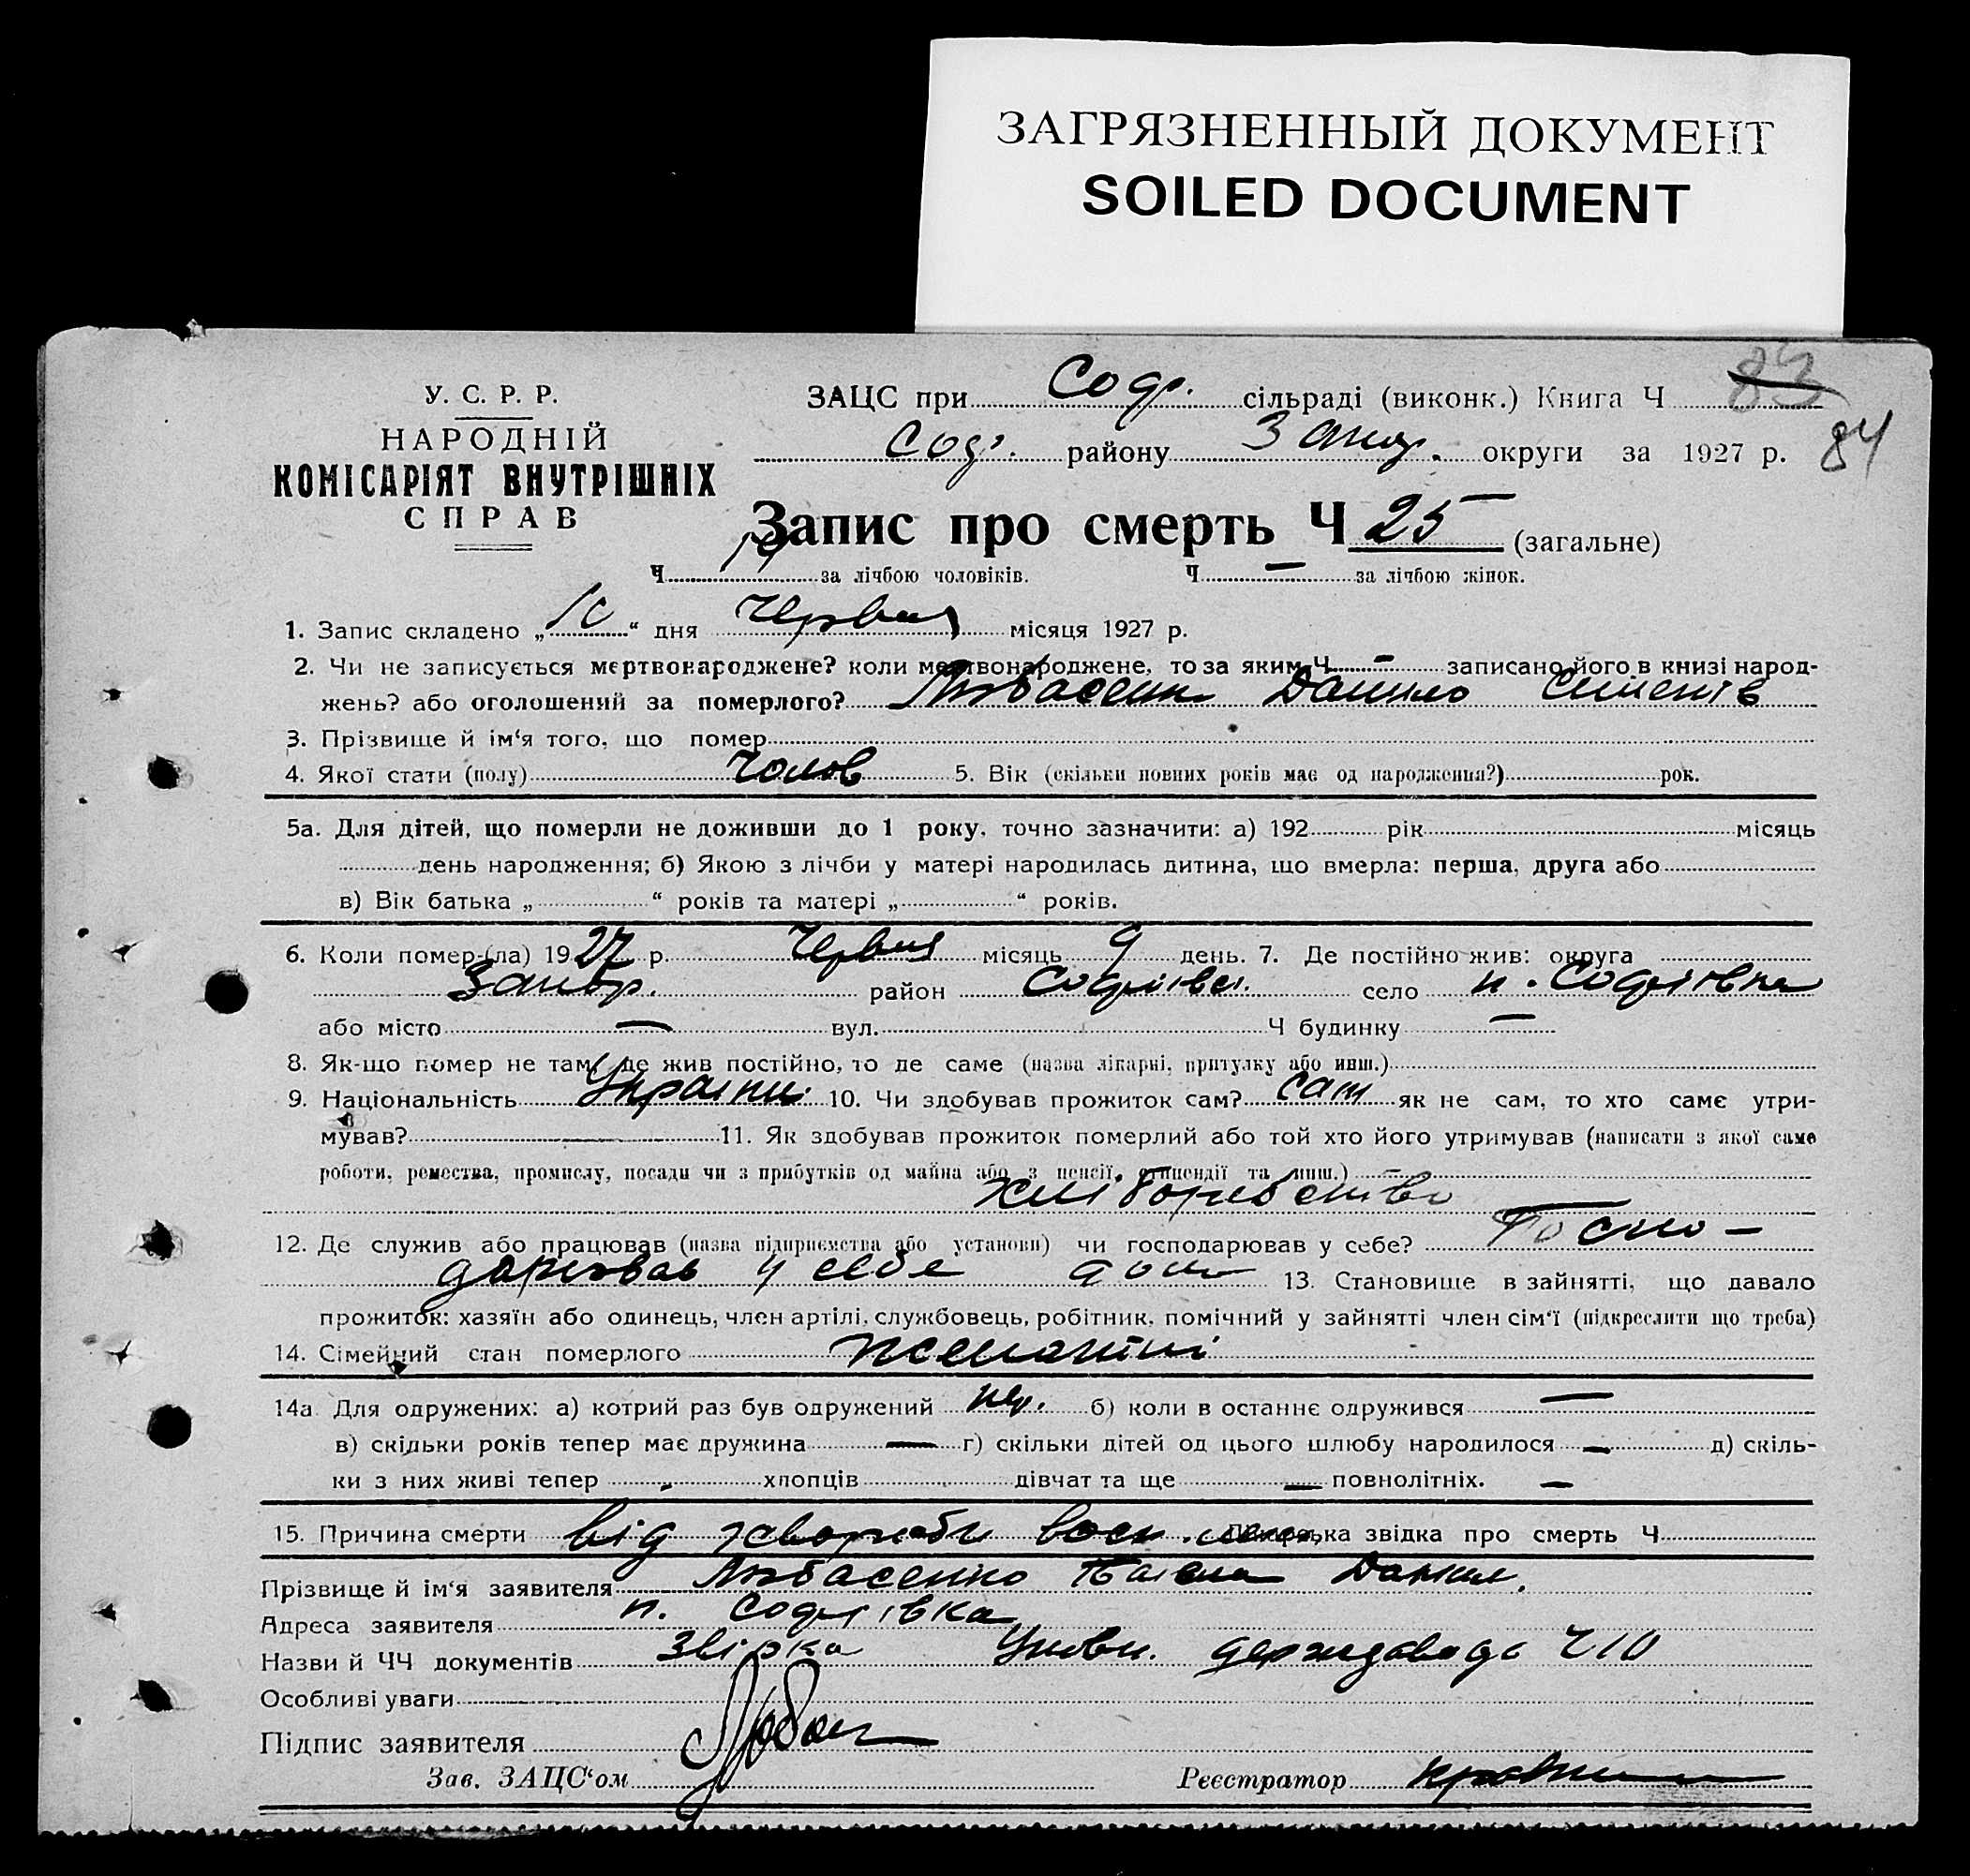 ЗАГРЯЗНЕННЫЙ ДОКУМЕНТ
SOILED DOCUMENT
У. С. Р. Р.
НАРОДНІЙ
КОМІСАРІЯТ ВНУТРІШНІХ
СПРАВ
ЗАЦС при Соф. сільраді (виконк.) Книга Ч 83
Соф. району Запор. округи за 1927 р. 84
Запис про смерть Ч 25 (загальне)
Ч 14 за лічбою чоловіків. Ч — за лічбою жінок.
1. Запис складено „ “ дня Червня місяця 1927 р.
2. Чи не записується мертвонароджене? коли мертвонароджене, то за яким Ч — записано його в книзі народ-
жень? або оголошений за померлого? Данило
3. Прізвище й ім‘я того, що помер
4. Якої стати (полу) Чолов 5. Вік (скільки повних років має од народження?) рок.
5а. Для дітей, що померли не доживши до 1 року, точно зазначити: а) 192 рік місяць
день народження; б) Якою з лічби у матері народилась дитина, що вмерла: перша, друга або
в) Вік батька „ “ років та матері „ “ років.
6. Коли помер-(ла) 1927 р. Червня місяць 9 день. 7. Де постійно жив: округа
Запор. район Софіївс. село н. Софіївка
або місто — вул. Ч будинку —
8. Як-що помер не там, де жив постійно, то де саме (назва лікарні, притулку або инш.)
9. Національність 10. Чи здобував прожиток сам? сам як не сам, то хто саме утри-
мував? 11. Як здобував прожиток померлий або той хто його утримував (написати з якої саме
роботи, ремества, промислу, посади чи з прибутків од майна або з пенсії, стипендії та инш.) —
хліборобство
12. Де служив або працював (назва підприємства або установи) чи господарював у себе? Госпо-
дарював у себе дома 13. Становище в зайнятті, що давало
прожиток: хазяїн або одинець, член артілі, службовець, робітник, помічний у зайнятті член сім‘ї (підкреслити що треба)
14. Сімейний стан померлого
14а. Для одружених: а) котрий раз був одружений пер. б) коли в останнє одружився —
в) скільки років тепер має дружина — г) скільки дітей од цього шлюбу народилося — д) скіль-
ки з них живі тепер хлопців дівчат та ще — повнолітніх. —
15. Причина смерти від хвороби Лікарська звідка про смерть Ч
Прізвище й ім‘я заявителя Данил.
Адреса заявителя н. Софіївка
Назви й ЧЧ документів
Особливі уваги
Підпис заявителя
Зав. ЗАЦС‘ом Реєстратор